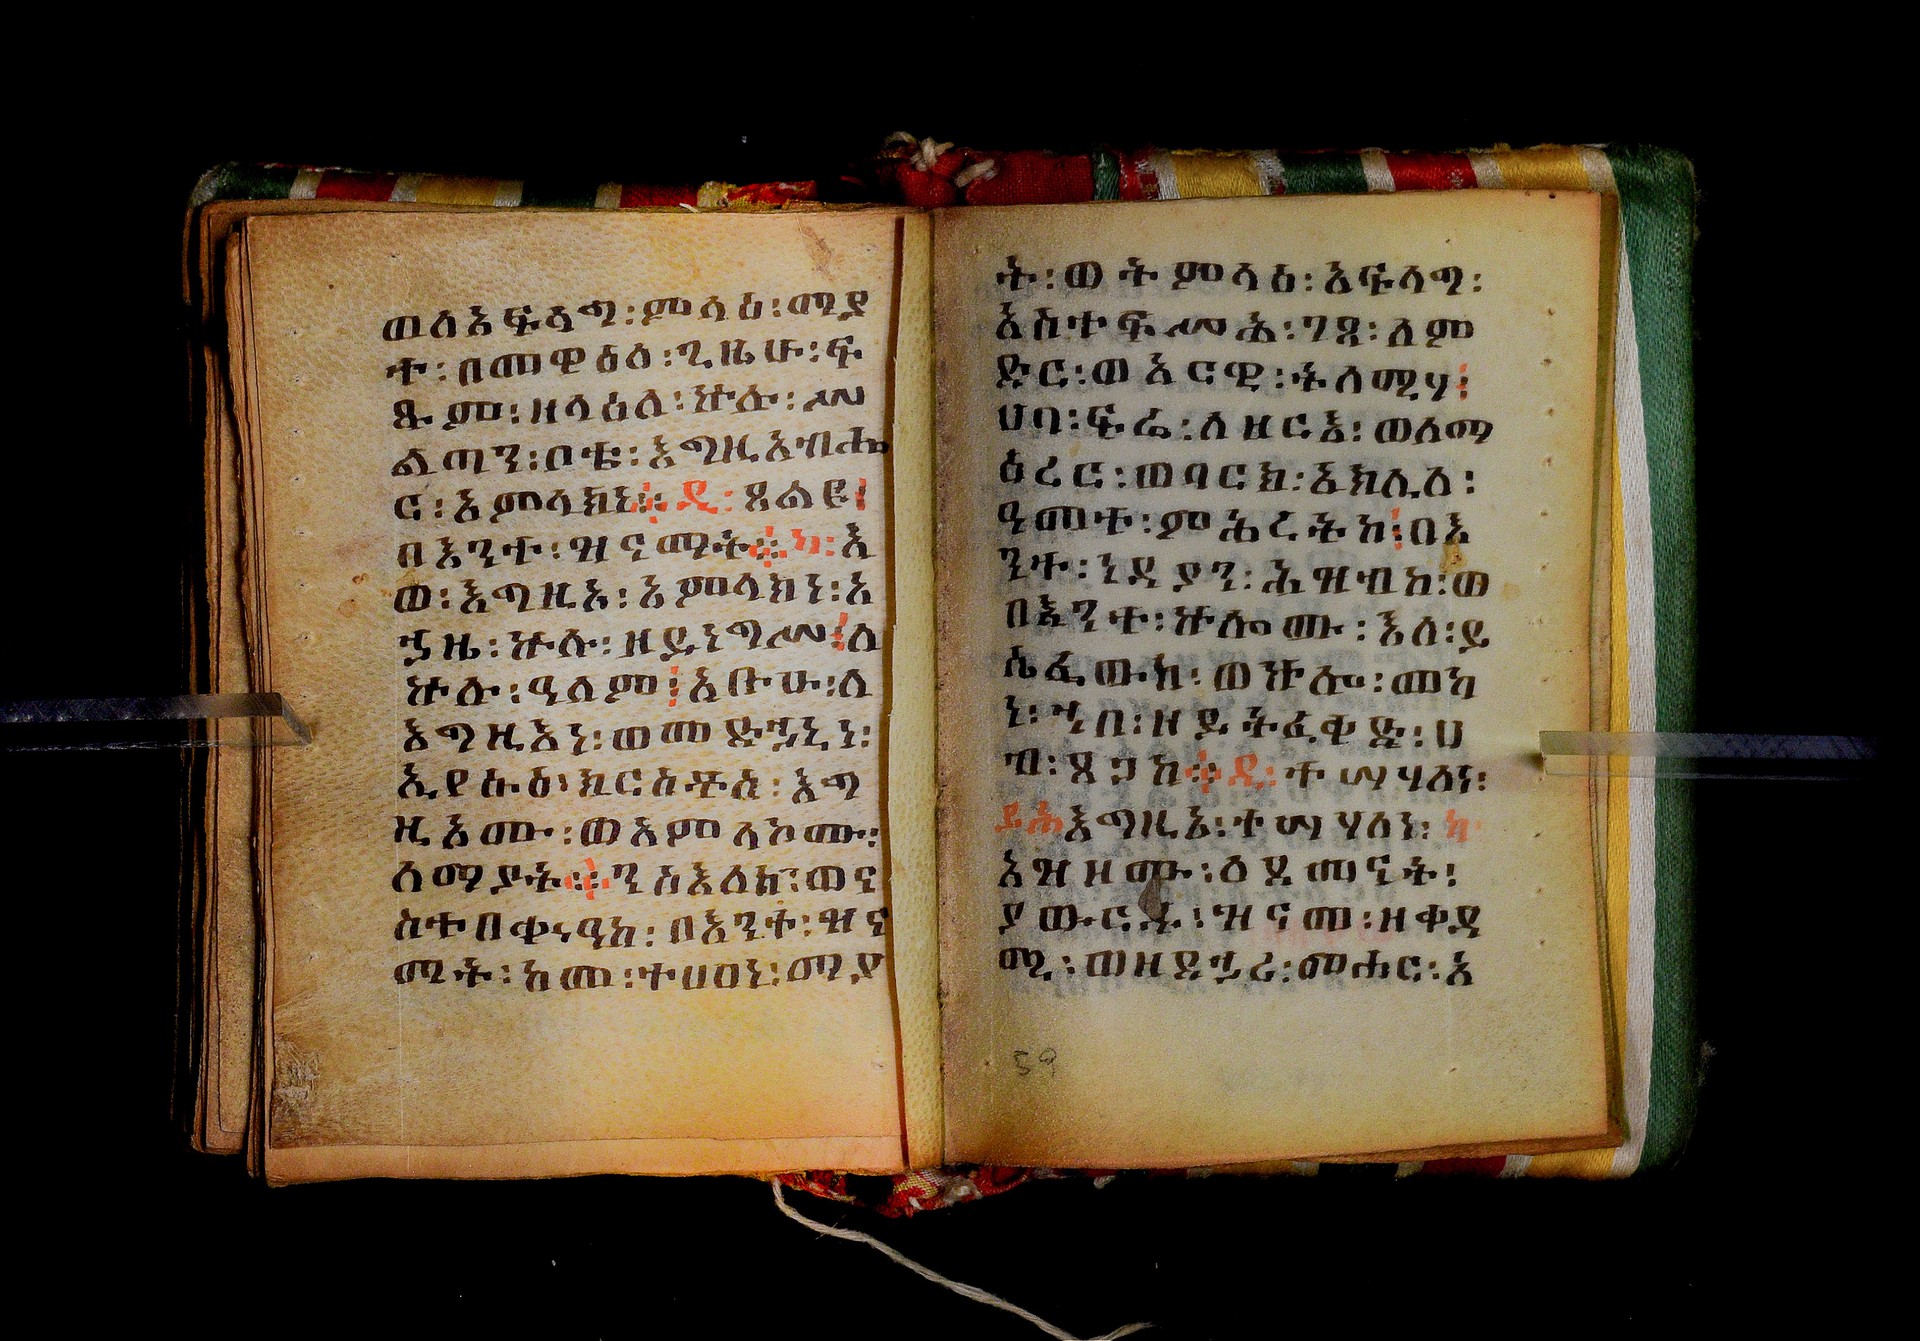 ወለአፍላግ፡ምላዕ፡ማያ
ተ፡በመዋዕለ፡ጊዜሁ፡ፍ
ጹም፡ዘላዕለ፡ኵሉ፡ሥ
ልጣን፡ቦቱ፡እግዚአብሔ
ር፡አምላክነ፨ዲ፡ጸልዩ፤
በእንተ፡ዝናማት፨ካ፡እ
ወ፡እግዚእ፡አምላክነ፡አ
ኃዜ፡ኵሉ፡ዘይነግሥ፤ለ
ኵሉ፡ዓለም፤አቡሁ፡ለ
እግዚእነ፡ወመድኃኒነ፡
ኢየሱስ፡ክርስቶስ፡እግ
ዚኦሙ፡ወአምላኮሙ፡
ለማያት፨ንስእለከ፡ወና
ስተበቀኍዓከ፡በእንተ፡ዝና
ማት፡ከመ፡ተሀበነ፡ማያ
ት፡ወትምላዕ፡አፍላግ፡
አስተፍሥሕ፡ገጻ፡ለም
ድር፡ወአርዊ፡ትለሚሃ፤
ሀባ፡ፍሬ፡ለዘርእ፡ወለማ
ዕረር፡ወባርክ፡አክሊለ፡
ዓመተ፡ምሕረትከ፤በእ
ንተ፡ነዳያን፡ሕዝብከ፡ወ
በእንተ፡ኵሎሙ፡እለ፡ይ
ሴፈውከ፡ወኵሎ፡መካ
ነ፡ኀበ፡ዘይትፈቀድ፡ሀ
ብ፡ጸጋከ፨ዲ፡ተሣሃለነ፡
ይሕእግዚእ፡ተሣሃለነ፡ካ
አዝዘሙ፡ለደመናት፡
ያውርዱ፡ዝናመ፡ዘቀዳ
ሚ፡ወዘደኃሪ፡መሐር፡አ
59